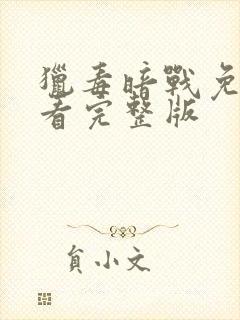 獵毒暗戰免
看完整版
負小文